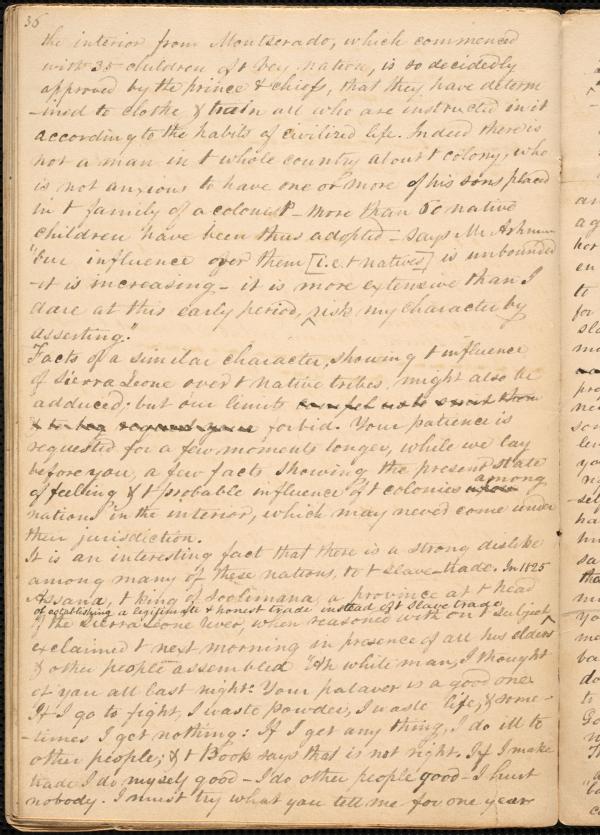 36
the interior from Montserado, which commenced
with 35 children of t bey nation, is so decidedly
approved by the prince & chiefs, that they have determ
-ined to clothe & train all who are instructed in it
according to the habits of civilized life. Indeed there is
not a man in t whole country about t colony, who
is not anxious to have one or more of his sons placed
in t family of a colonist - more than 50 native
children have been thus adopted - says Mr Ashmun
"our influence over them [i.e. t natives] is unbounded
-it is increasing - it is more extensive than I
dare at this early period, risk my character by
asserting."
Facts of a similar character, showing t influence
of Sierra Leone over t native tribes, might also be
adduced; but our limits
forbid. Your patience is
requested for a few moments longer, while we lay
before you, a few facts showing the present state
of feeling & t probable influence of t colonies among
nations in the interior, which may never come under
their jurisdiction.
It is an interesting fact that there is a strong dislike
among many of these nations, to t slave-trade. In 1825
Assana, t King of Soolimana, a province at t head
of establishing a legitimate & honest trade instead of t slave trade
of the Sierra Leone river, when reasoned with on t subject
exclaimed t next morning in presence of all his elders
& other people assembled "Ah white man, I thought
of you all last night: Your palaver is a good one
If I go to fight, I waste powder, I waste life, & some-
-times I get nothing: If I get any thing, I do ill to
other people; & t Book says that is not right. If I make
trade I do myself good - I do other people good - I hurt
nobody. I must try what you tell me for one year